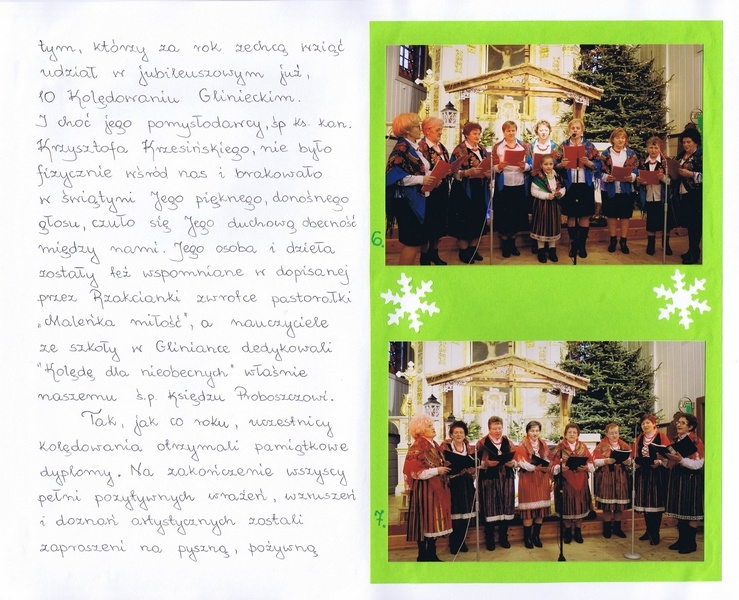 tym, którzy za rok zechcą wziąć
udział w jubileuszowym już,
10 Kolędowaniu Glinieckim.
I choć jego pomysłodawcy, śp ks. kan.
Krzysztofa Krzesińskiego, nie było
fizycznie wśród nas i brakowało
w świątyni Jego pięknego, donośnego
głosu, czuło się Jego duchową obecność
między nami. Jego osoba i dzieła
zostały też wspomniane w dopisanej
przez Rzakcianki zwrotce pastorałki
„Maleńka miłość", a nauczyciele
ze szkoły w Gliniance dedykowali
"Kolędę dla nieobecnych" właśnie
naszemu ś.p. Księdzu Proboszczowi.
Tak, jak co roku, uczestnicy
kolędowania otrzymali pamiątkowe
dyplomy. Na zakończenie wszyscy
pełni pozytywnych wrażeń, wzruszeń
i doznań artystycznych zostali
zaproszeni na pyszną, pożywną
6.
7.